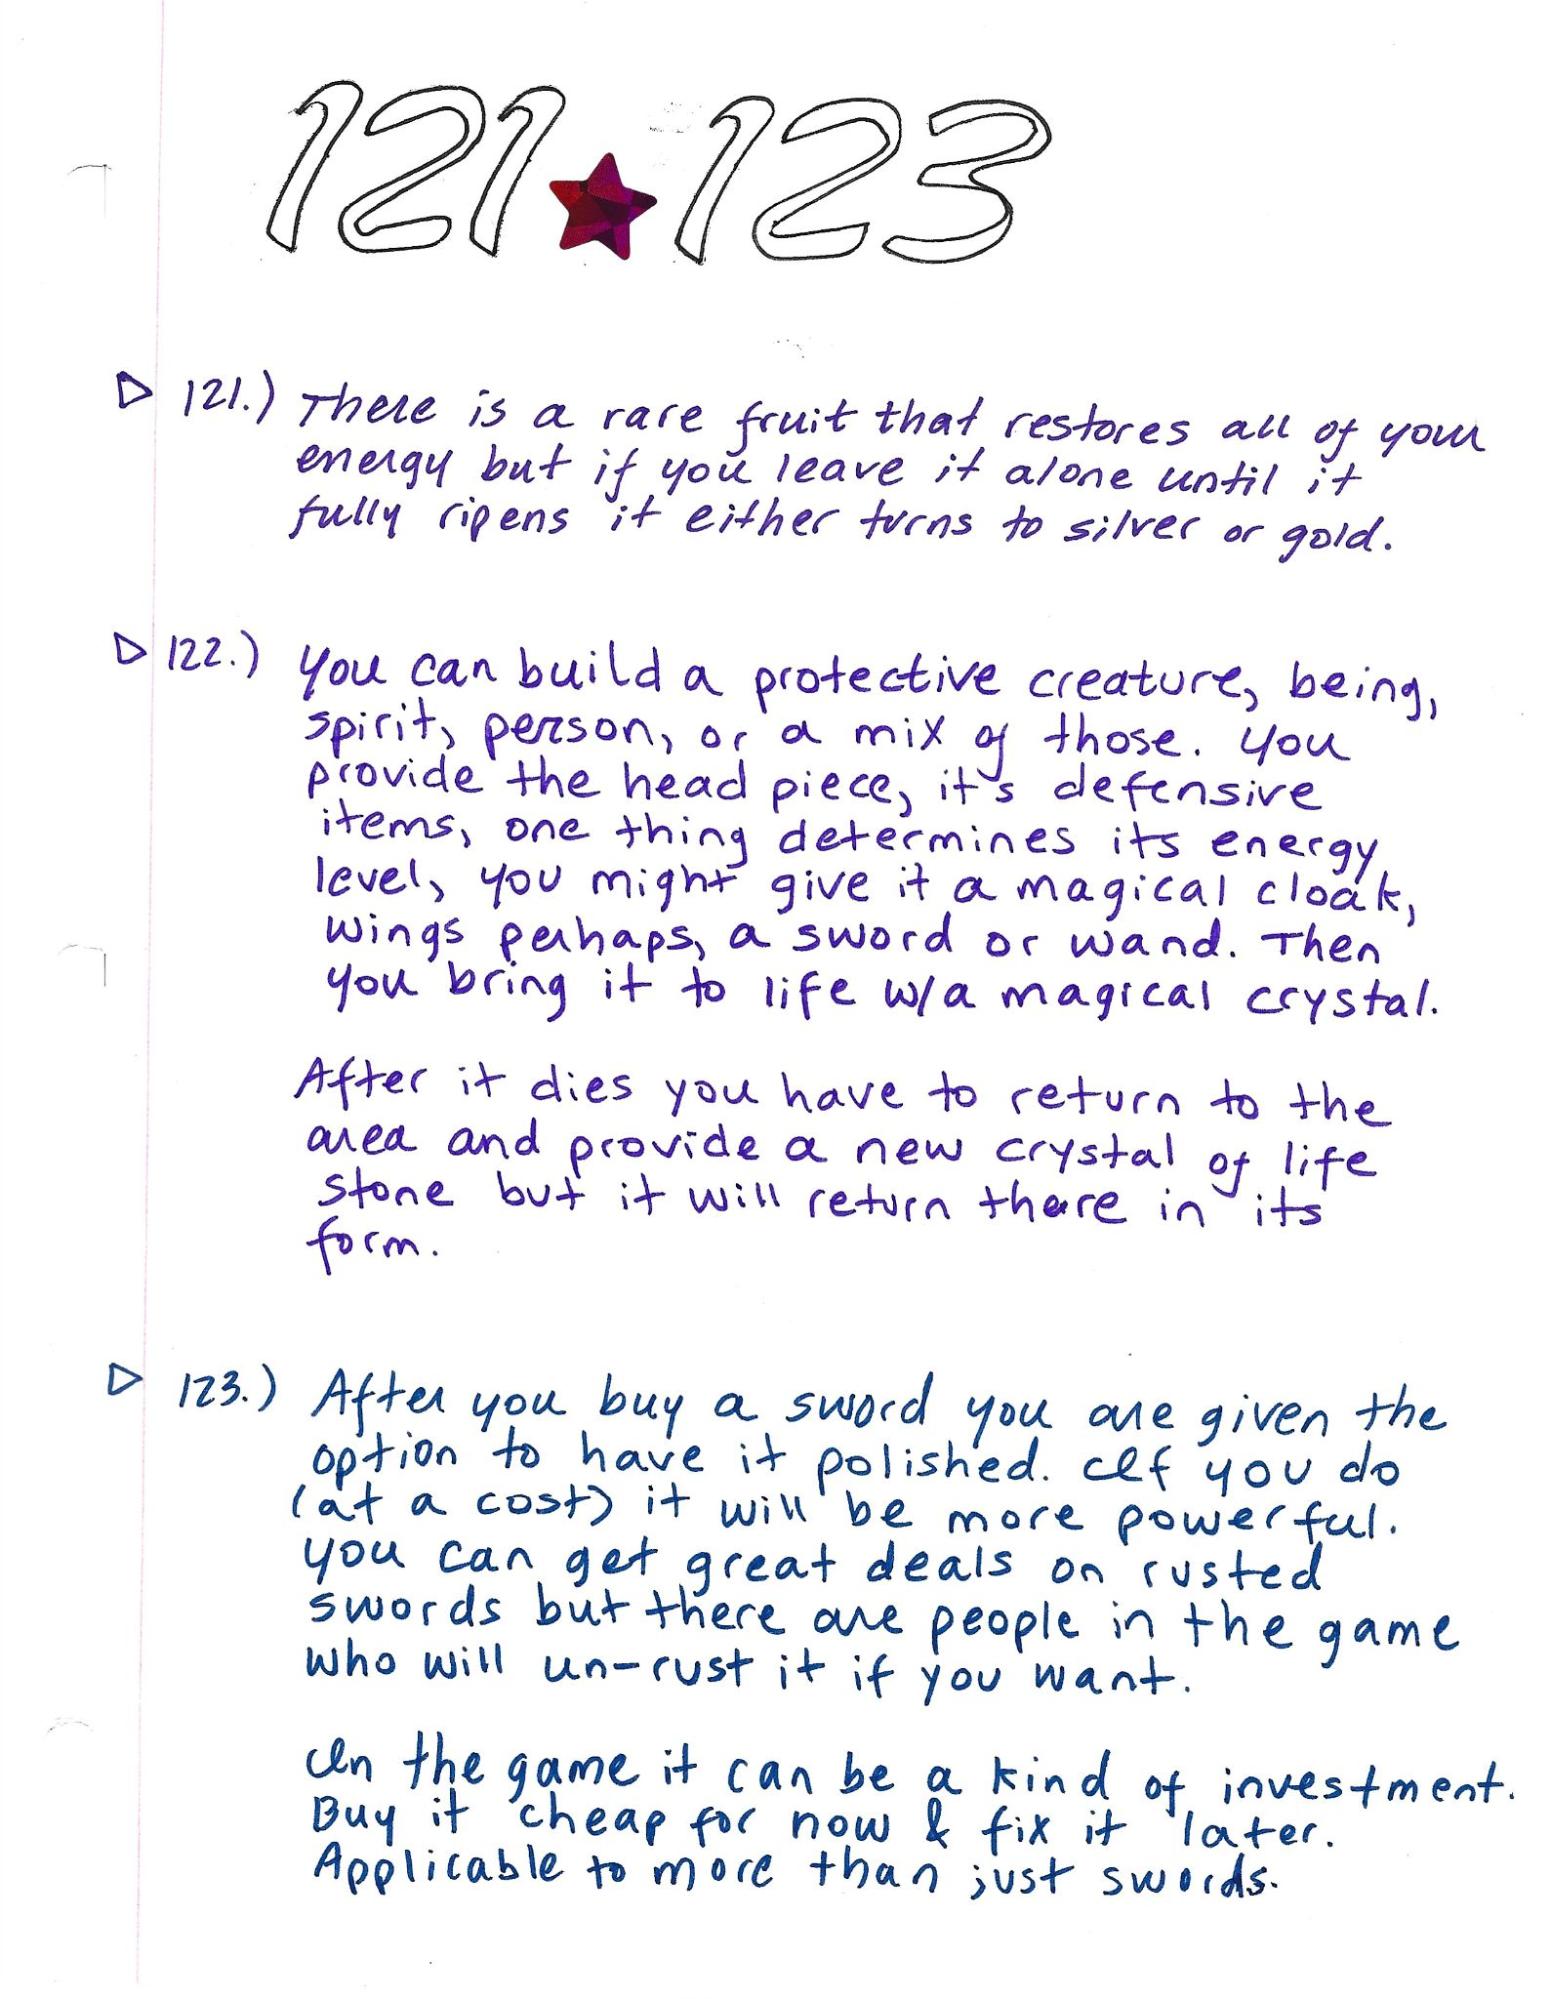 121 123
121.) There is a rare fruit that restores all of your
energy but if you leave it alone until it
fully ripens it either turns to silver or gold.
122.) You can build a protective creature, being,
spirit, person, or a mix of those. You
provide the head piece, it's defensive
items, one thing determines its energy
level, you might give it a magical cloak,
wings perhaps, a sword or wand. Then
you bring it to life w/a magical crystal.
After it dies you have to return to the
area and provide a new crystal of life
stone but it will return there in its
form.
123.) After you buy a sword you are given the
option to have it polished. If you do
(at a cost) it will be more powerful.
You can get great deals on rusted
swords but there are people in the game
who will un-rust it if you want.
In the game it can be a kind of investment.
Buy it cheap for now & fix it later.
Applicable to more than just swords.